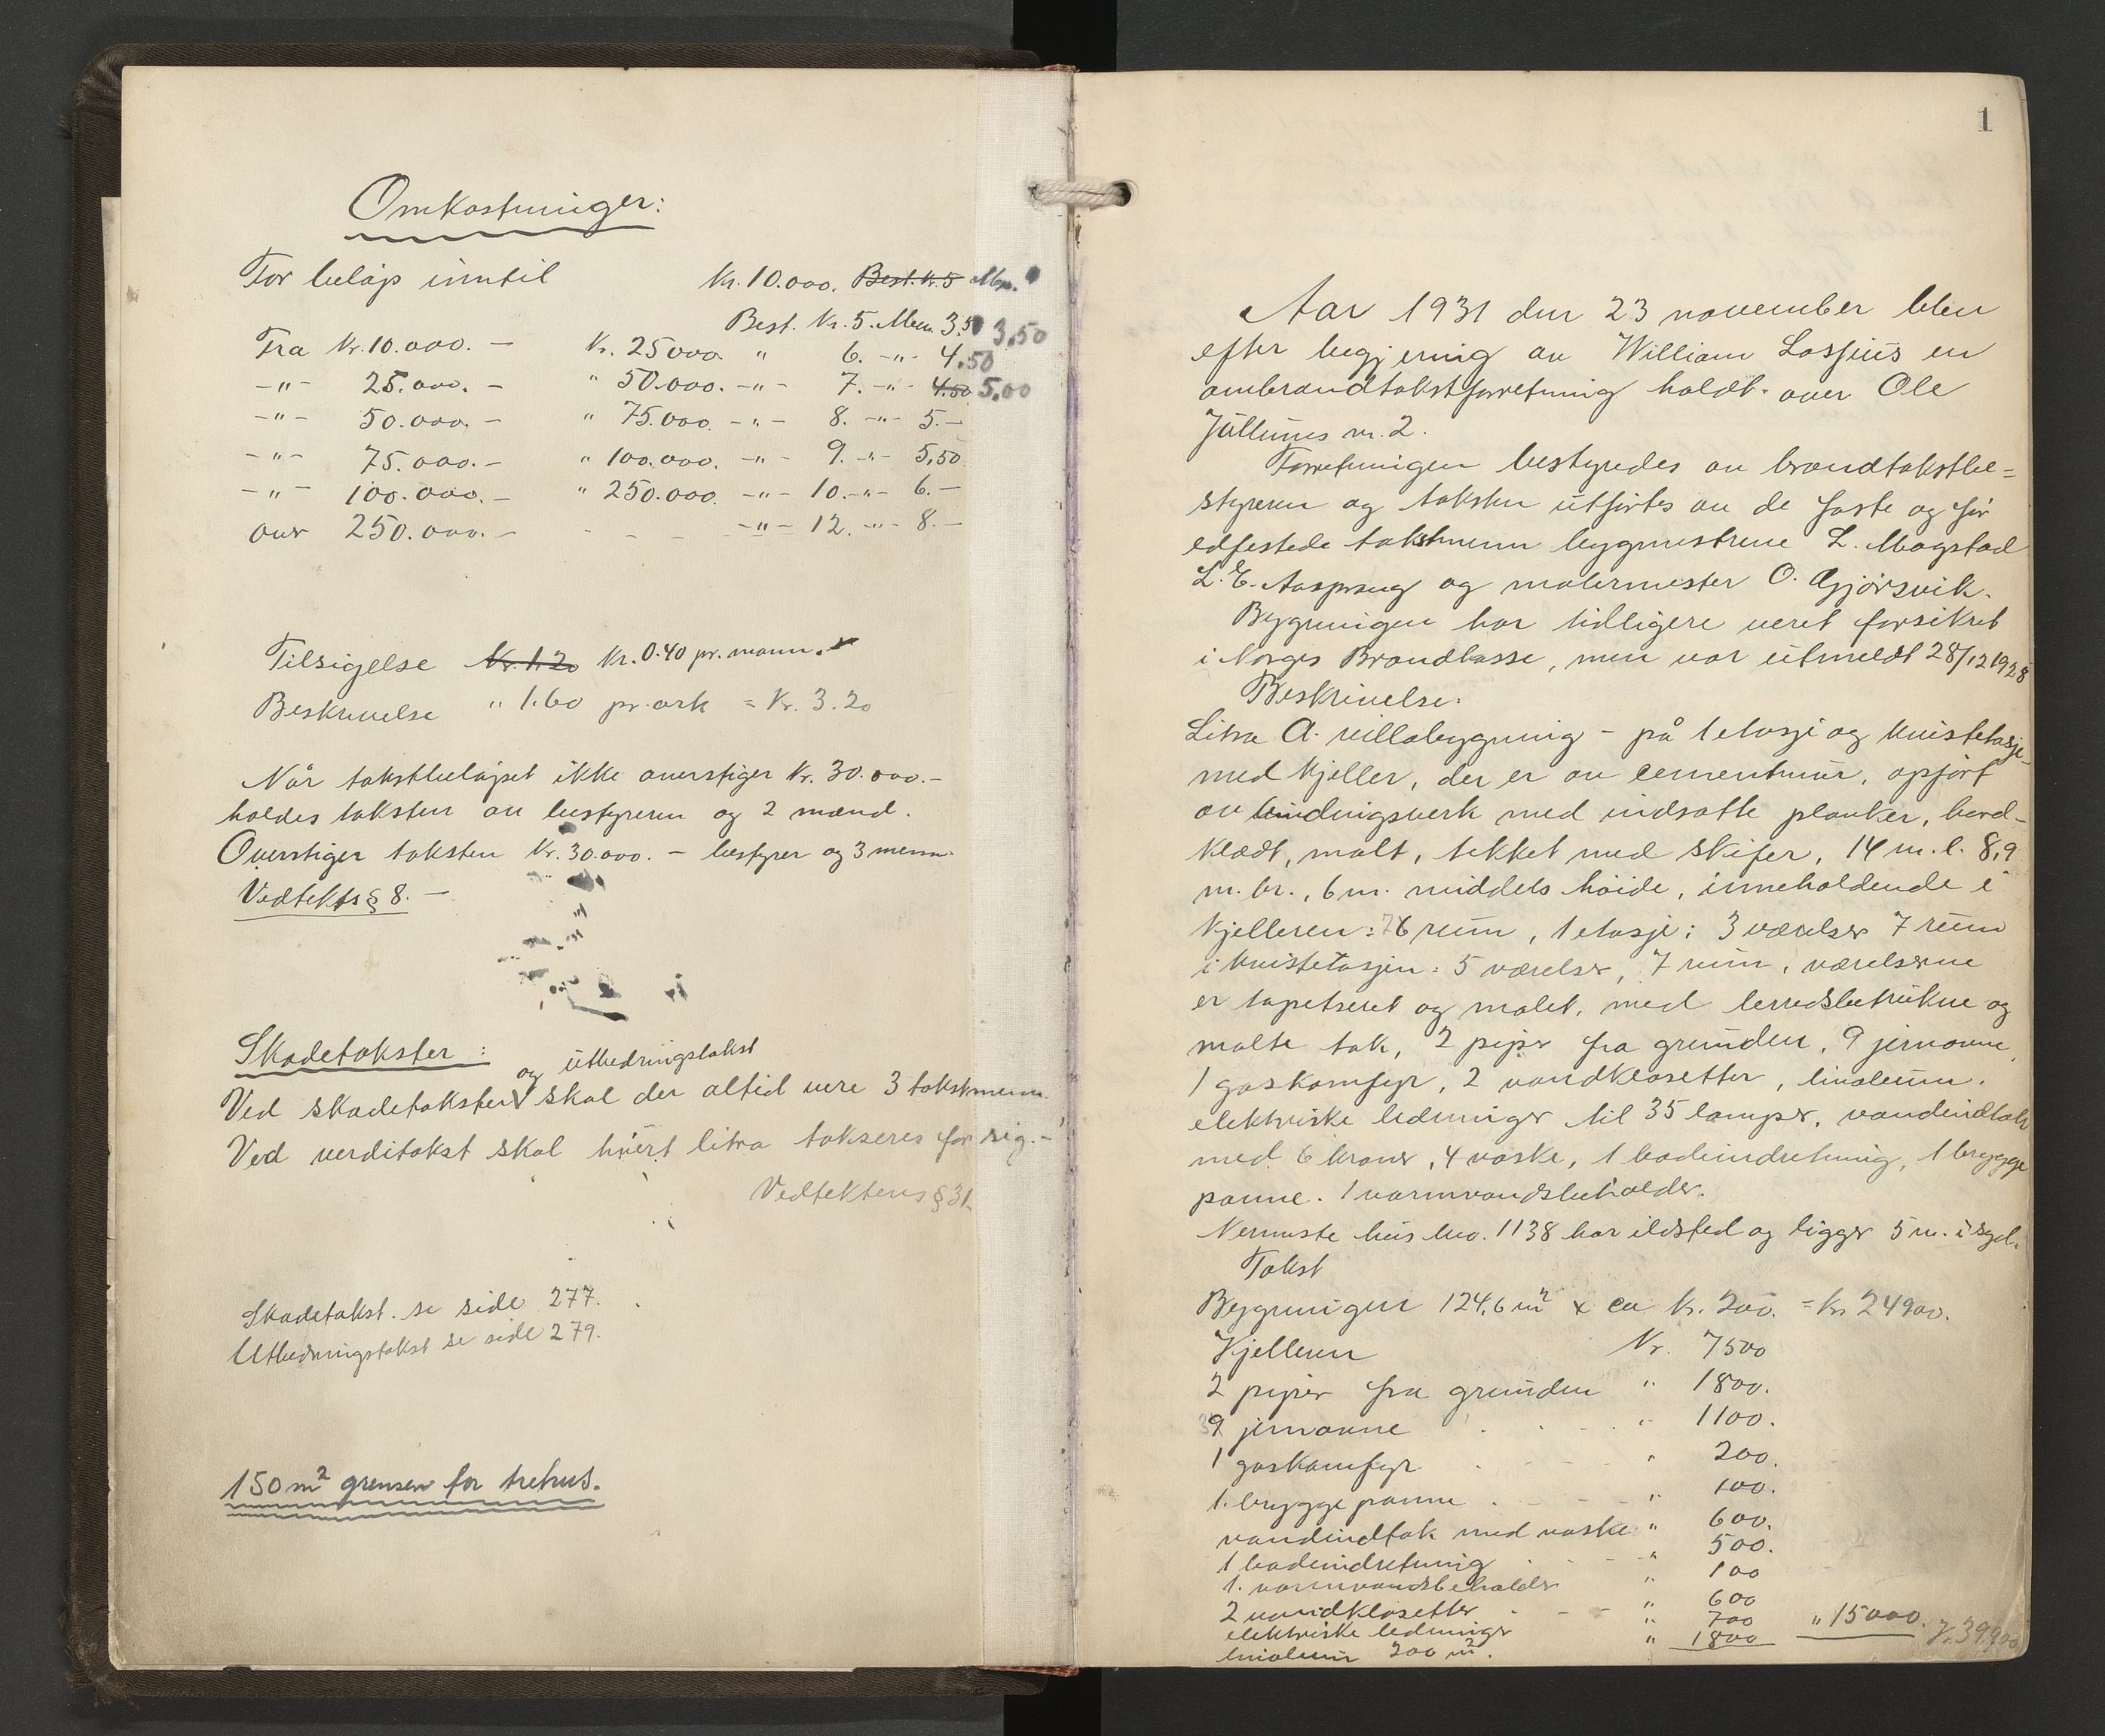 Omkostninger:
For beløp inntil Kr. 10.000. Best. Kr. 5 Men.
Best. Kr. 5. Men 3.50 3,50
Fra Kr. 10.000. — Kr. 25000. " 6. -"- 4.50
-"- 25.000. — " 50.000. -"- 7. -"- 4.50 5,00
-"- 50.000. — " 75.000. -"- 8. -"- 5.—
-"- 75.000. — " 100.000. -"- 9. -"- 5,50
-"- 100.000. — " 250.000. -"- 10. -"- 6.—
over 250.000. — -"- 12. -"- 8.—
Tilsigelse Kr. 1.20 Kr. 0.40 pr. mann.
Beskrivelse " 1.60 pr. ark = Kr. 3.20
Når takstbeløpet ikke overstiger Kr. 30.000.—
holdes taksten av bestyreren og 2 mænd.
Overstiger taksten Kr. 30.000. — bestyrer og 3 menn.
Vedtekts § 8. —
Skadetakster:
og utbedringstakst
Ved skadetakster skal der altid være 3 takstmenn.
Ved verditakst skal hvert litra takseres for sig.—
Vedtektens § 31.
Skadetakst se side 277.
Utbedringstakst se side 279.
150 m² grensen for trehus.
1
Aar 1931 den 23 november blev
efter begjering av William Lossius en
ombrandtakstforretning holdt over Ole
Jullums v. 2.
Forretningen bestyredes av brandtakstbe=
styreren og taksten utførtes av de faste og før
edfestede takstmenn bygmestrene L. Magstad
L. E. Aasprang og malermester O. Gjørsvik.
Bygningen har tidligere veret forsikret
i Norges Brandkasse, men var utmeldt 28/12 1928
Beskrivelse.
Litra A. villabygning — på 1 etasje og kvistetasje
med kjeller, der er av cementmur, opført
av bindingsverk med indsatte planker, bord-
klædt, malt, tekket med skifer, 14 m. l. 8,9
m. br., 6 m. middels høide, inneholdende i
kjelleren: 6 rum, 1 etasje: 3 værelser 7 rum
i kvistetasjen: 5 værelser, 7 rum, værelserne
er tapetseret og malet, med lerredsbetrukne og
malte tak, 2 piper fra grunden, 9 jernovne,
1 gaskomfyr, 2 vandklosetter, linoleum.
elektriske ledninger til 35 lamper, vandindtak
med 6 kraner, 4 vaske, 1 badeindretning, 1 brygge
panne. 1 varmvandsbeholder.
Nermeste hus bno. 1138 har ildsted og ligger 5 m. i syd.
Takst
Bygningen 124,6 m² x ca Kr. 200. = Kr. 24900.
Kjelleren Kr. 7500
2 piper fra grunden " 1800.
9 jernovne " 1100.
1 gaskomfyr " 200.
1. bryggepanne " 100.
vandindtak med vaske " 600.
1 badeindretning " 500.
1. varmvandsbeholder " 100
2 vandklosetter " 600
elektriske ledninger " 700 " 15000.
linoleum 200 m². " 1800 Kr. 39.900